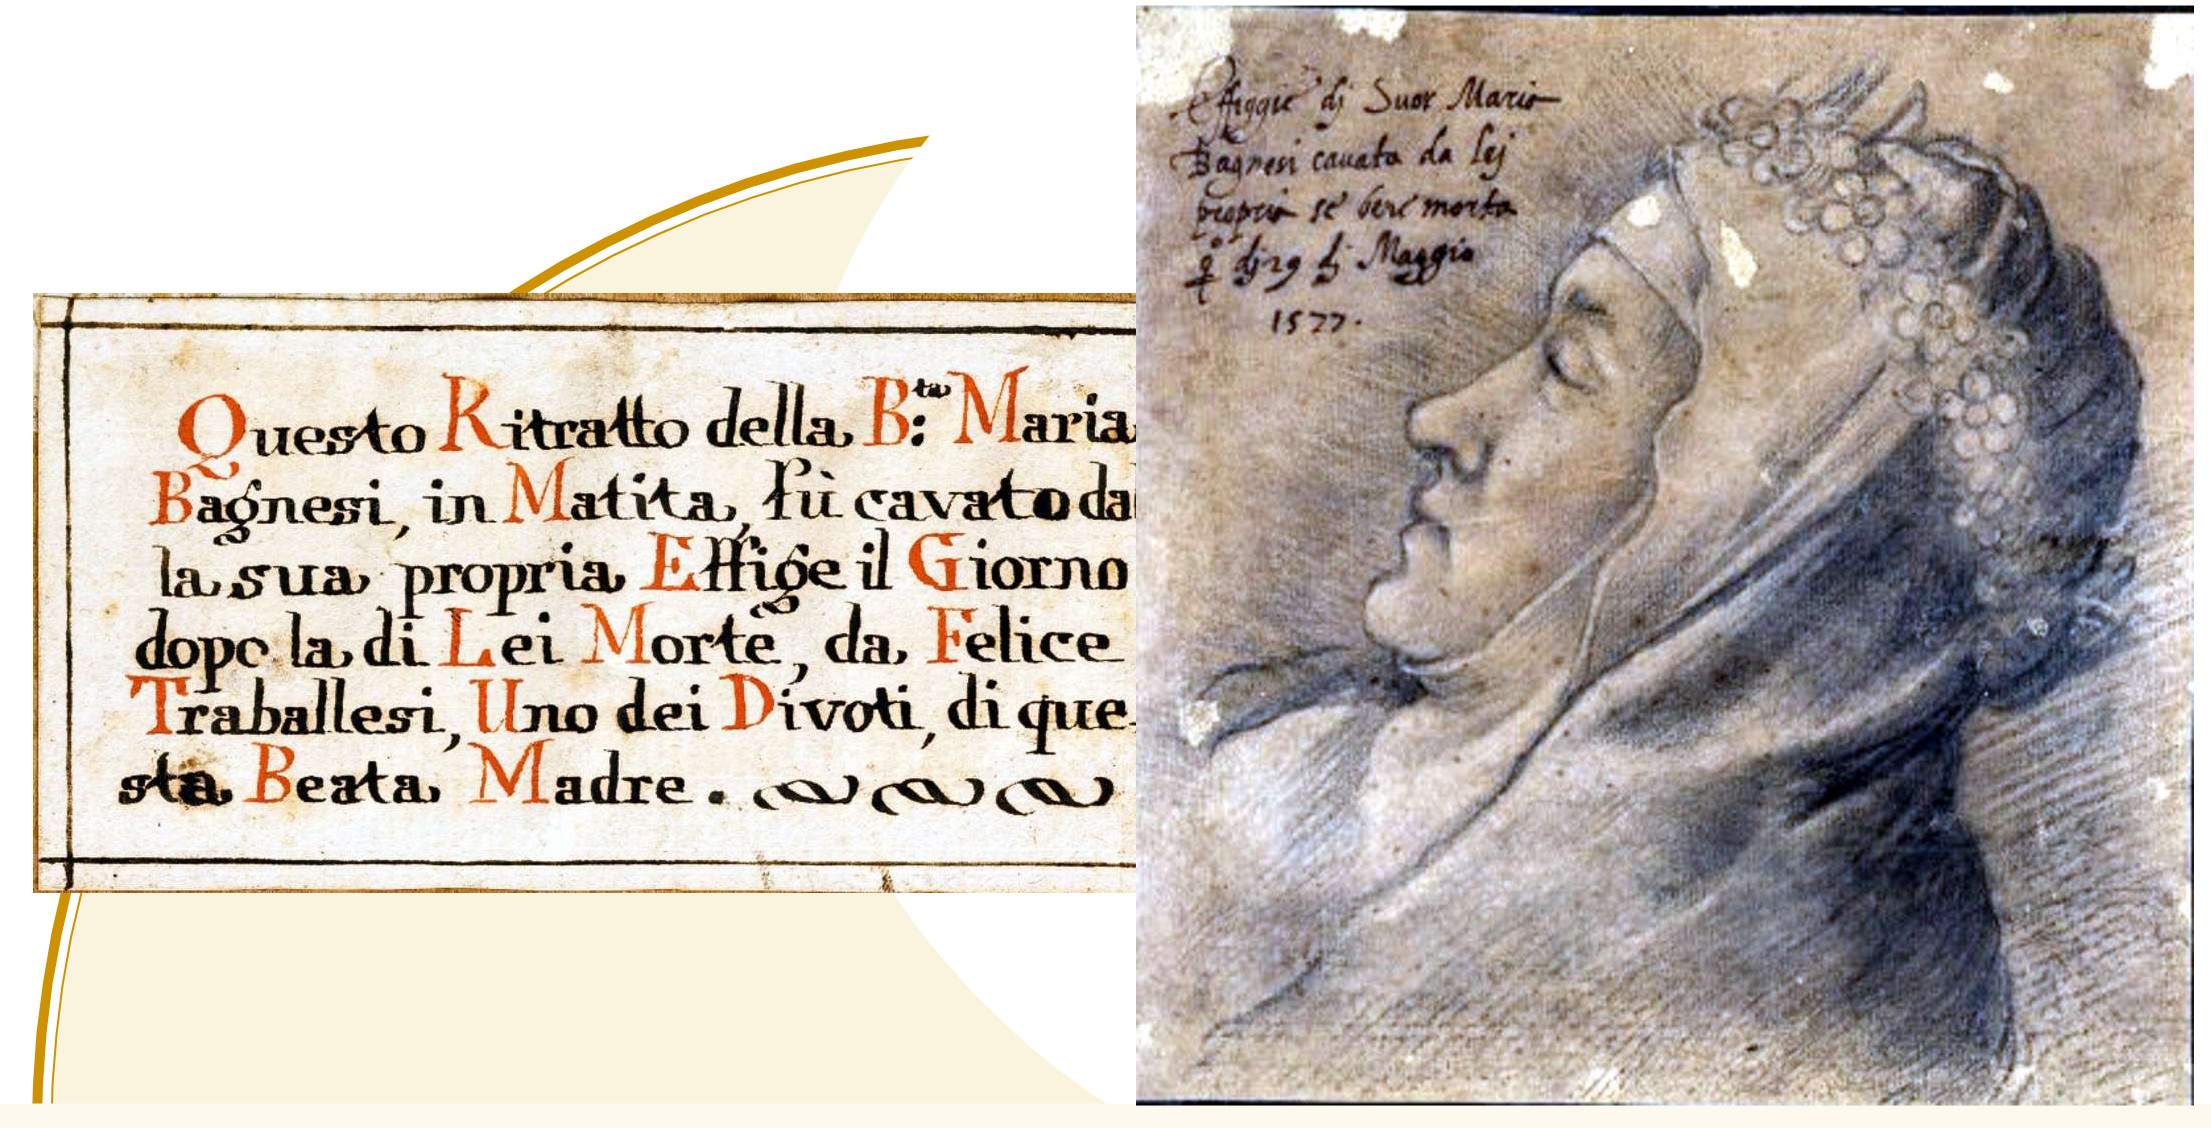 Questo Ritratto della B:ta Maria
Bagnesi, in Matita, fù cavato dal
la sua propria Effige il Giorno
dopo la di Lei Morte, da Felice
Traballesi, Uno dei Divoti, di que-
sta Beata Madre.
Effiggie dj Suor Maria
Bagnesi cauata da lej
propria se bene morta
dj 29 dj Maggio
1577.